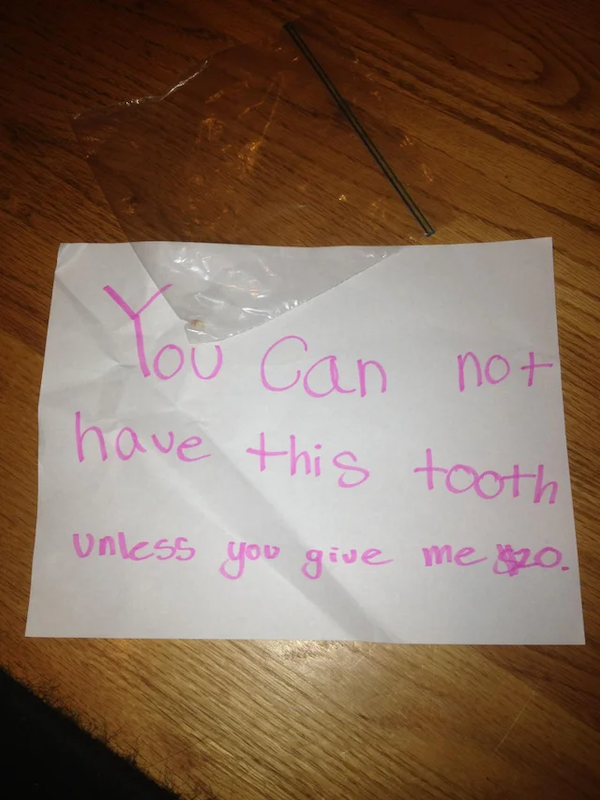 You Can not
have this tooth
unless you give me $20.